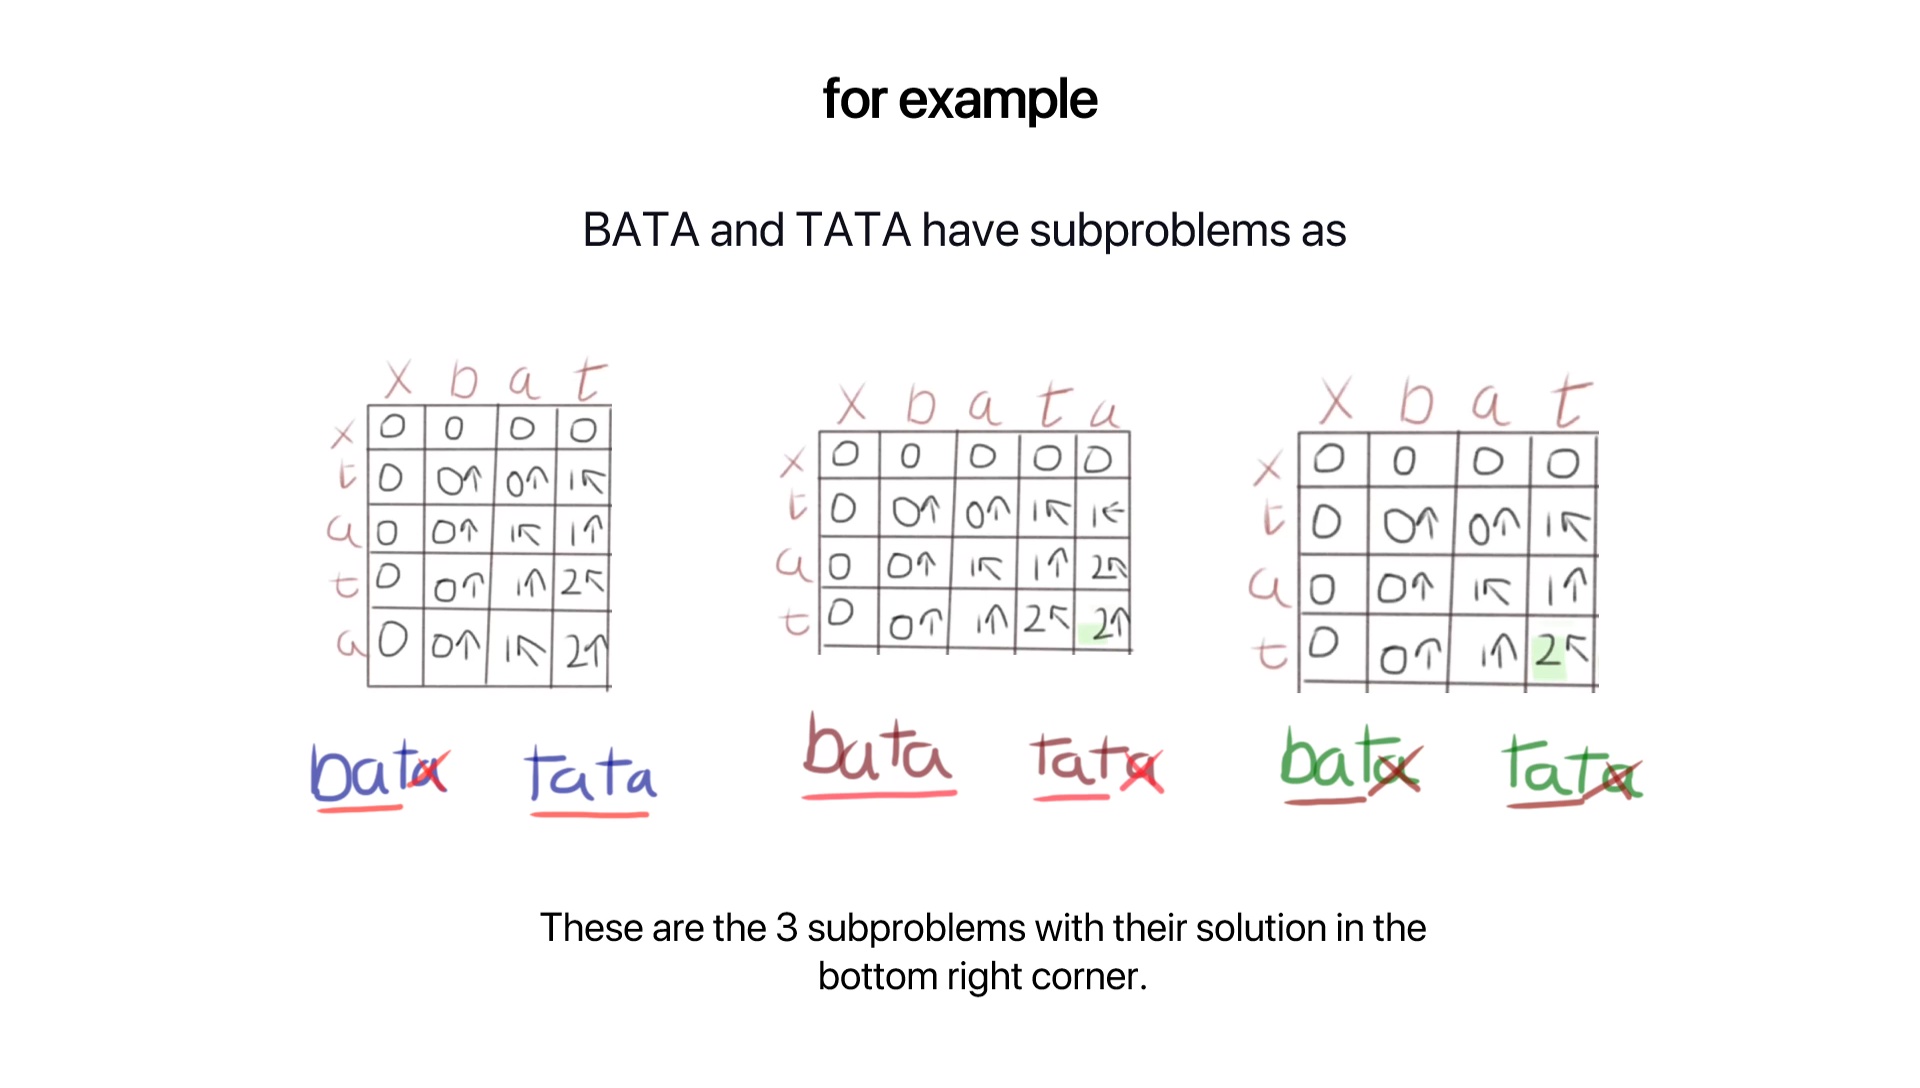 for example
BATA and TATA have subproblems as
x b a t
x 0 0 0 0
t 0 0↑ 0↑ 1↖
a 0 0↑ 1↖ 1↑
t 0 0↑ 1↑ 2↖
a 0 0↑ 1↖ 2↑
bata tata
x b a t a
x 0 0 0 0 0
t 0 0↑ 0↑ 1↖ 1←
a 0 0↑ 1↖ 1↑ 2↖
t 0 0↑ 1↑ 2↖ 2↑
bata tata
x b a t
x 0 0 0 0
t 0 0↑ 0↑ 1↖
a 0 0↑ 1↖ 1↑
t 0 0↑ 1↑ 2↖
bata tata
These are the 3 subproblems with their solution in the
bottom right corner.